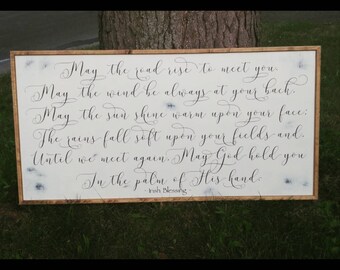 May the road rise to meet you.
May the wind be always at your back.
May the sun shine warm upon your face;
The rains fall soft upon your fields and
Until we meet again, May God hold you
In the palm of His hand.
- Irish Blessing